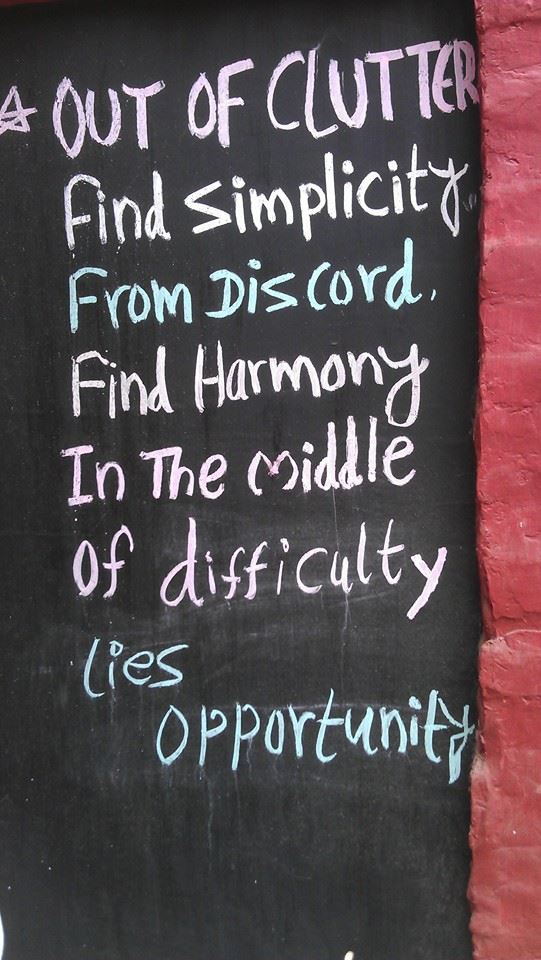 ☆ OUT OF CLUTTER
Find Simplicity.
From Discord.
Find Harmony
In The Middle
Of difficulty
Lies
Opportunity